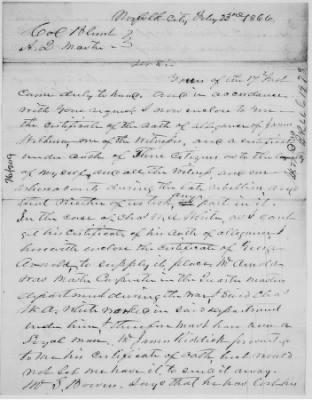 Norfolk City, July 23rd 1866.
Col Blunt
A. Q. Master
Sir
Yours of the 17th Inst
came duly to hand, And in accordance
with your request, I now enclose to you
the certificate of the oath of allegiance of James
one of the Witness, and a certificate
under oath of Three Citizens as to the
of myself, and all the Witness, and our
whereabouts during the late rebellion, and
that neither of us took any part in it.
In the case of Chas McWhite, as I cant
get his certificate of his oath of allegiance I
herewith enclose the certificate of George
Arnold, to supply its place, Mr Arnold
was Master Carpenter in the Quarter Masters
department during the war, & said Chas
White worked in said department
under him & therefore must have been a
loyal man. Mr James Riddick presented
to me his certificate of oath, but would
not let me have it to send it away.
Mr S. Bowen. says that he has lost his